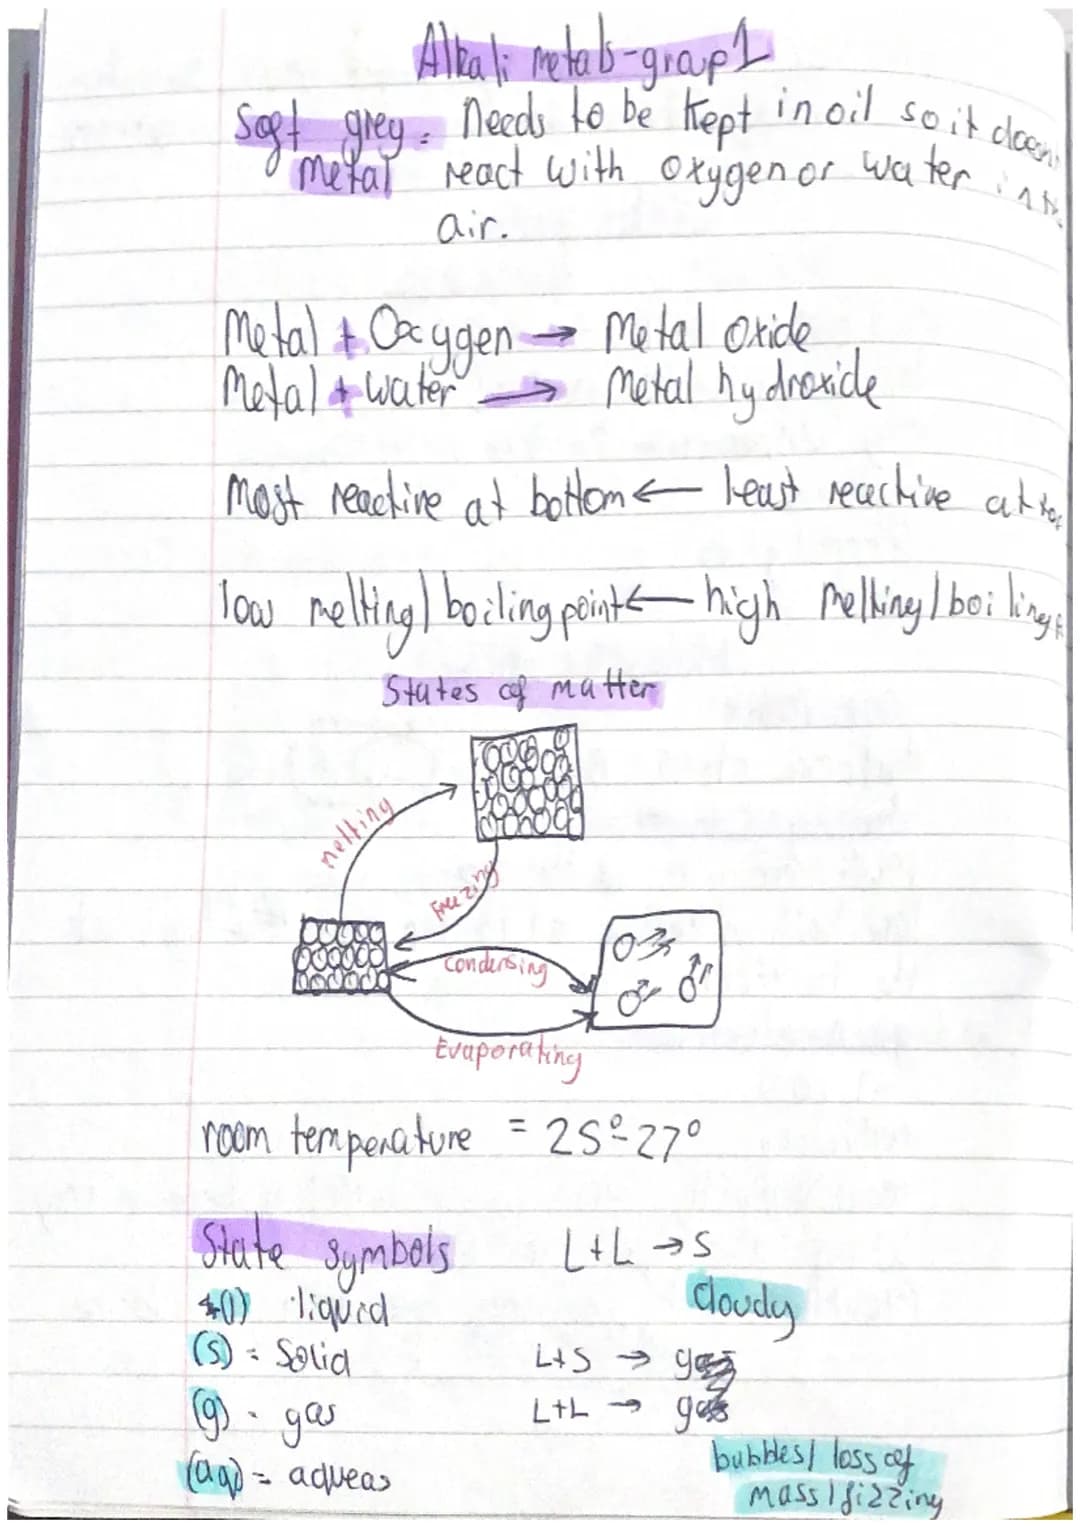 Alkali metals-group 1
Soft grey = Needs to be kept in oil so it doesn
metal react with oxygen or water in th
air.
Metal + Oxygen → Metal oxide
Metal + water → Metal hydroxide
Most reactive at bottom ← least reactive at to
low melting/boiling point ← high melting/boiling
States of matter
melting
Freezing
Condensing
Evaporating
room temperature = 25°-27°
State symbols L+L → S
(l) liquid cloudy
(s) = Solid L+S → gas
(g) - gas L+L → gas
(aq) = aqueas
bubbles/ loss of
mass/fizzing